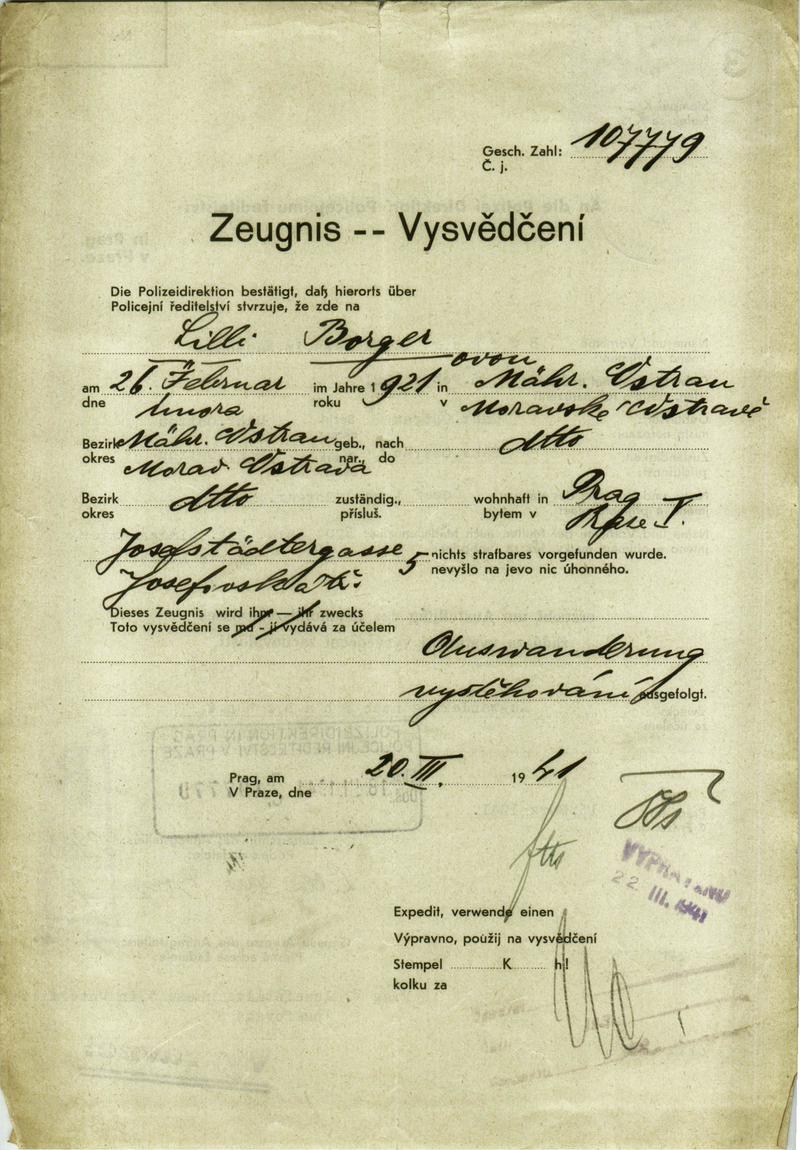 Gesch. Zahl: 107779
Č. j.
Zeugnis -- Vysvědčení
Die Polizeidirektion bestätigt, daß hierorts über
Policejní ředitelství stvrzuje, že zde na
Lilli Borger
ovou
am 26. Februar im Jahre 1921 in Mähr. Ostrau
dne února roku v Moravské Ostravě
Bezirk Mähr. Ostrau geb., nach dtto
okres Morav. Ostrava nar., do
Bezirk dtto zuständig., wohnhaft in Prag
okres přísluš. bytem v Praze I.
Josefstädtergasse 5 nichts strafbares vorgefunden wurde.
Josefovská nevyšlo na jevo nic úhonného.
Dieses Zeugnis wird ihm — ihr zwecks
Toto vysvědčení se mu - jí vydává za účelem
Auswanderung
vystěhování ausgefolgt.
Prag, am 20. III. 1941
V Praze, dne
VYPRAVENO
22 III. 1941
Expedit, verwende einen
Výpravno, použij na vysvědčení
Stempel K h!
kolku za